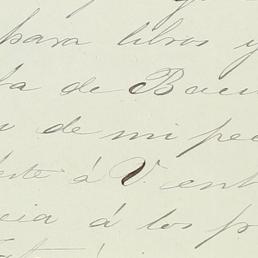 para libros y
a de Bue
de mi pe
este á V. ent
cia á los p